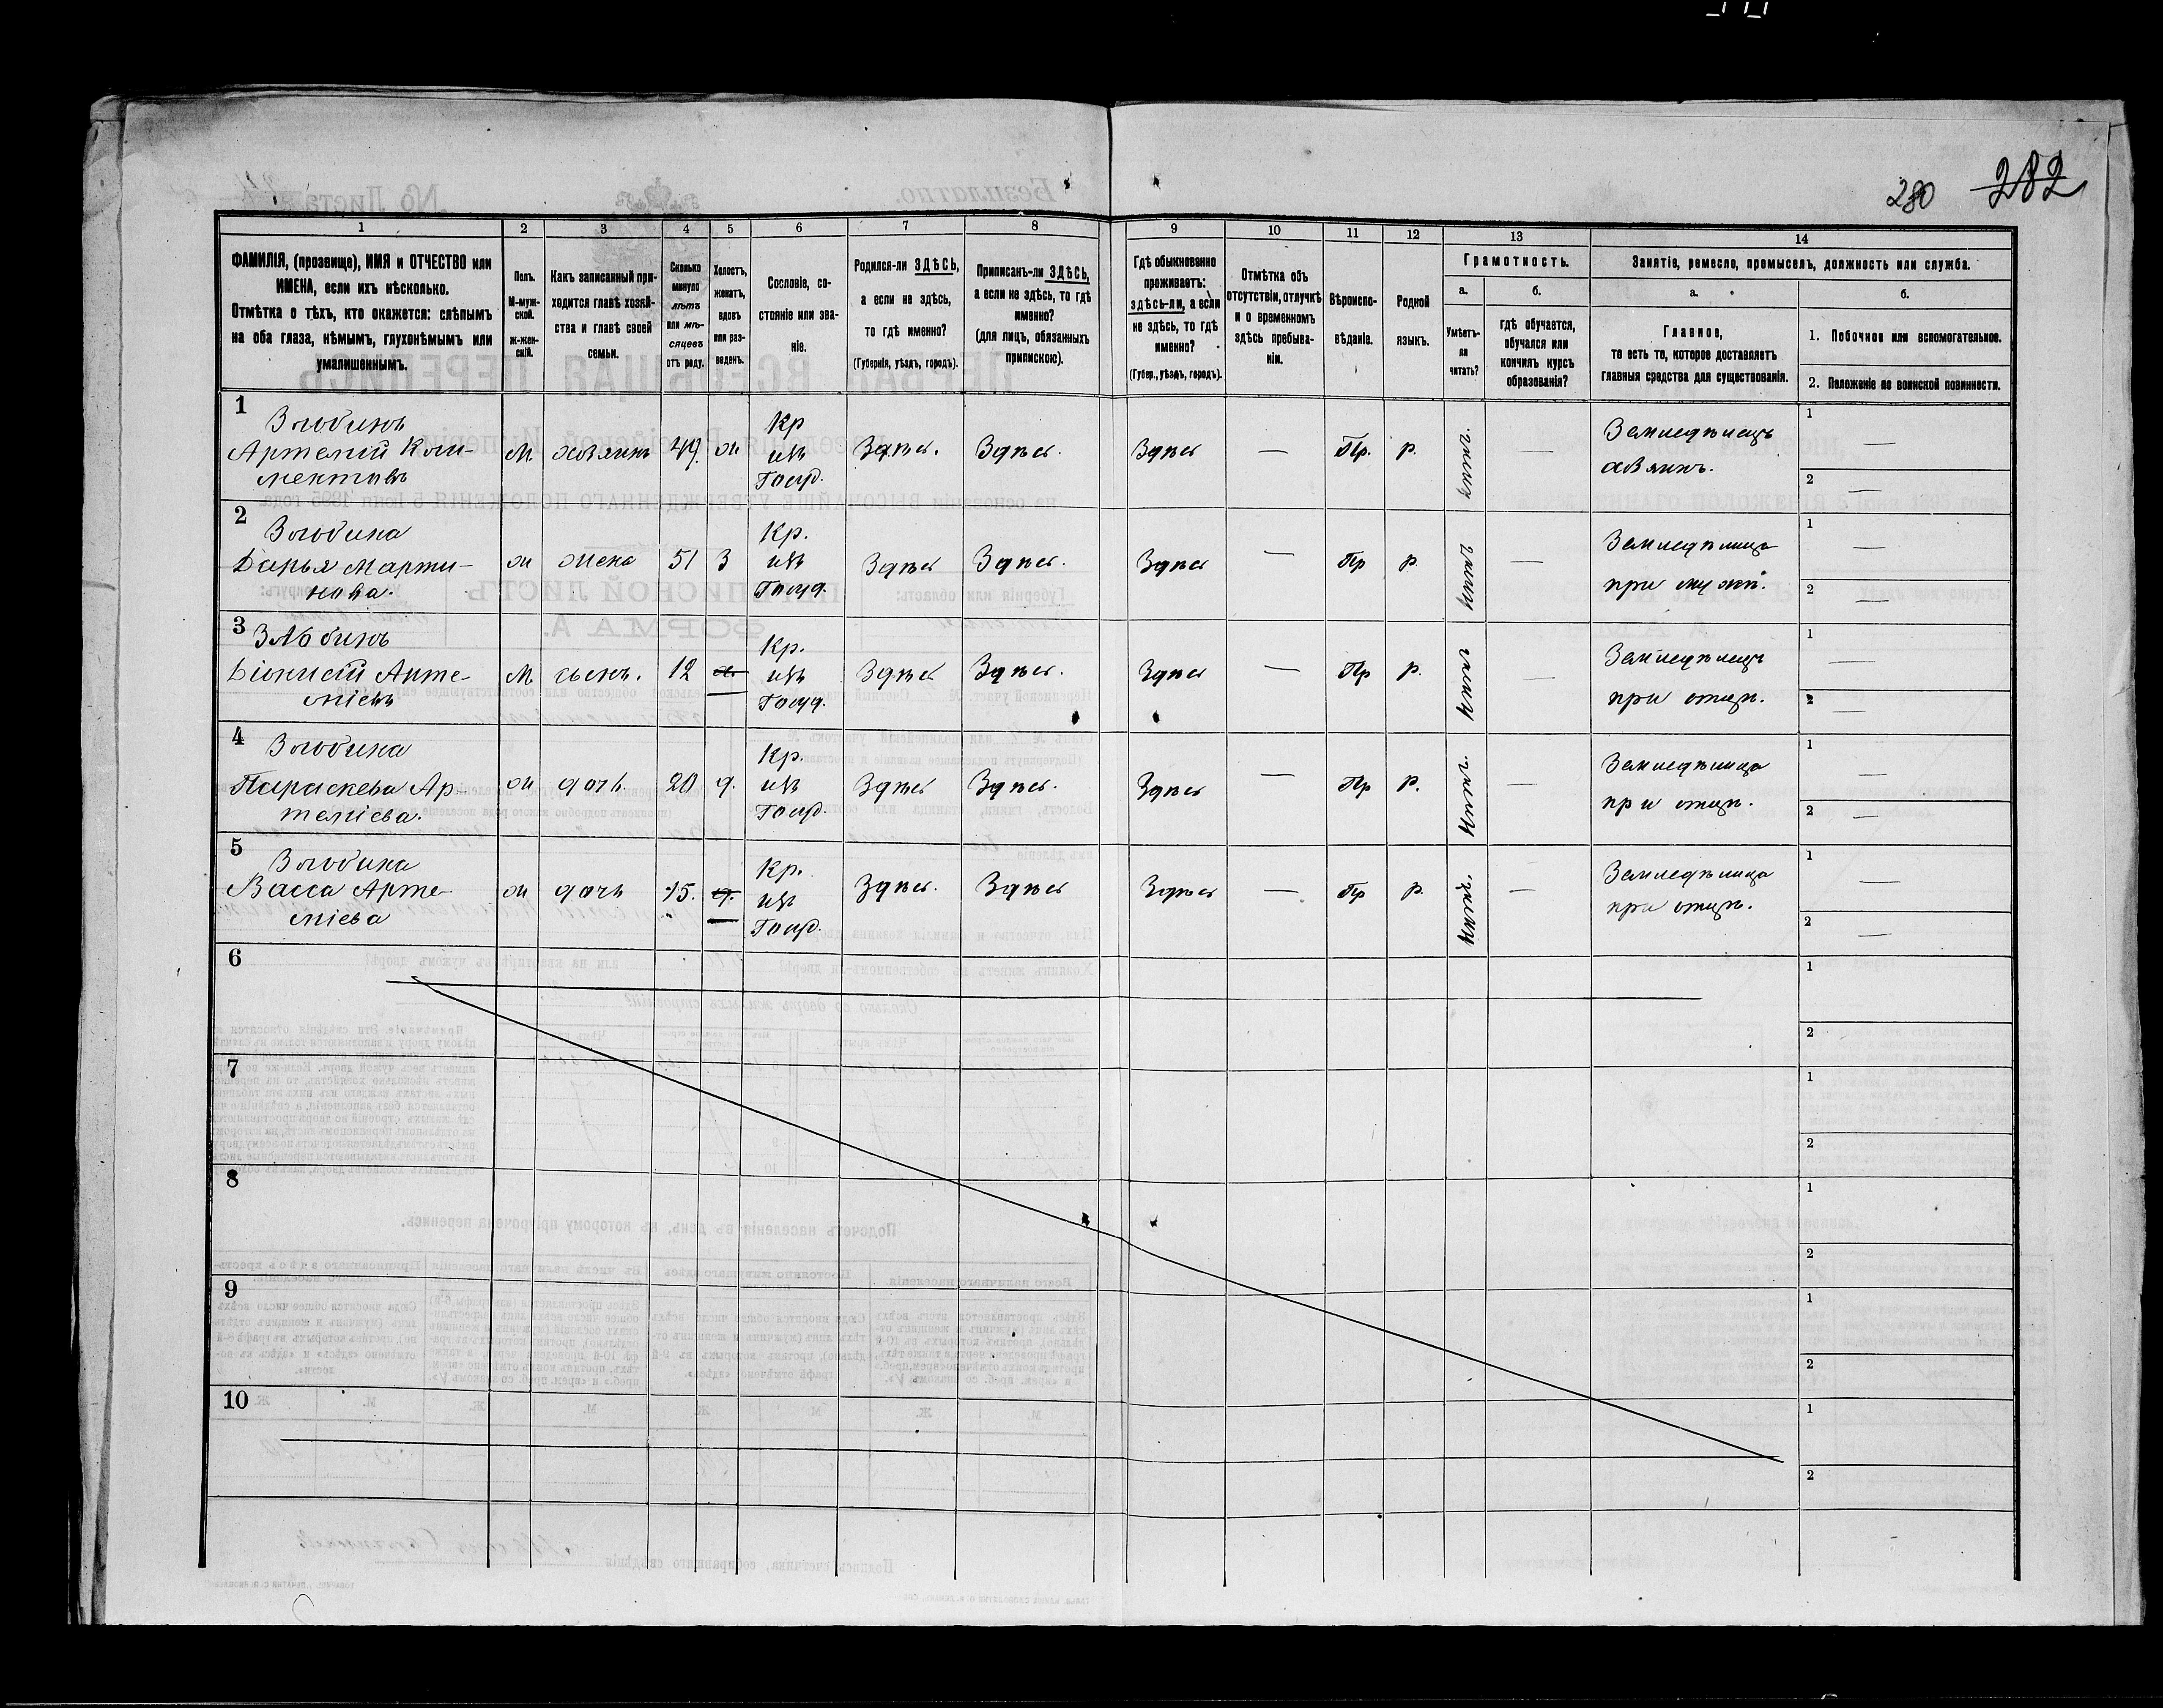 280 282
1 2 3 4 5 6 7 8 9 10 11 12 13 14
ФАМИЛІЯ, (прозвище), ИМЯ и ОТЧЕСТВО или
ИМЕНА, если ихъ нѣсколько.
Отмѣтка о тѣхъ, кто окажется: слѣпымъ
на оба глаза, нѣмымъ, глухонѣмымъ или
умалишеннымъ.
Полъ.
М-муж-
ской.
ж-жен-
скій.
Какъ записанный при-
ходится главѣ хозяй-
ства и главѣ своей
семьи.
Сколько
минуло
лѣтъ
или мѣ-
сяцевъ
отъ роду.
Холостъ,
женатъ,
вдовъ
или раз-
веденъ.
Сословіе, со-
стояніе или зва-
ніе.
Родился-ли ЗДѢСЬ,
а если не здѣсь,
то гдѣ именно?
(Губернія, уѣздъ, городъ).
Приписанъ-ли ЗДѢСЬ,
а если не здѣсь, то гдѣ
именно?
(для лицъ, обязанныхъ
припискою).
Гдѣ обыкновенно
проживаетъ:
здѣсь-ли, а если
не здѣсь, то гдѣ
именно?
(Губер., уѣздъ, городъ).
Отмѣтка объ
отсутствіи, отлучкѣ
и о временномъ
здѣсь пребыва-
ніи.
Вѣроиспо-
вѣданіе.
Родной
языкъ.
Грамотность.
а.
Умѣетъ-
ли
читать?
б.
гдѣ обучается,
обучался или
кончилъ курсъ
образованія?
Занятіе, ремесло, промыселъ, должность или служба.
а.
Главное,
то есть то, которое доставляетъ
главныя средства для существованія.
б.
1. Побочное или вспомогательное.
2. Положеніе по воинской повинности.
1
Злобинъ
Артемій
М хозяинъ 49. ж
Кр
изъ
Госуд.
Здѣсь. Здѣсь. Здѣсь — Пр. р. —
Земледѣлецъ
хозяинъ.
1 —
2 —
2
Злобина
Дарья Марти-
нова.
ж жена 51 З
Кр.
изъ
Госуд.
Здѣсь Здѣсь. Здѣсь — Пр р. —
Земледѣлица
при мужѣ.
1 —
2 —
3
Злобинъ
Діонисій Арте-
міевъ
М сынъ. 12 х.
Кр.
изъ
Госуд.
Здѣсь Здѣсь. Здѣсь — Пр р. —
Земледѣлецъ
при отцѣ.
1 —
2 —
4
Злобина
Параскева Ар-
теміева.
ж дочь. 20 д.
Кр.
изъ
Госуд.
Здѣсь Здѣсь. Здѣсь — Пр р. —
Земледѣлица
при отцѣ.
1 —
2 —
5
Злобина
Васса Арте-
міева
ж дочь 15. д.
Кр.
изъ
Госуд.
Здѣсь. Здѣсь Здѣсь — Пр р. —
Земледѣлица
при отцѣ.
1 —
2 —
6
1
2
7
1
2
8
1
2
9
1
2
10
1
2